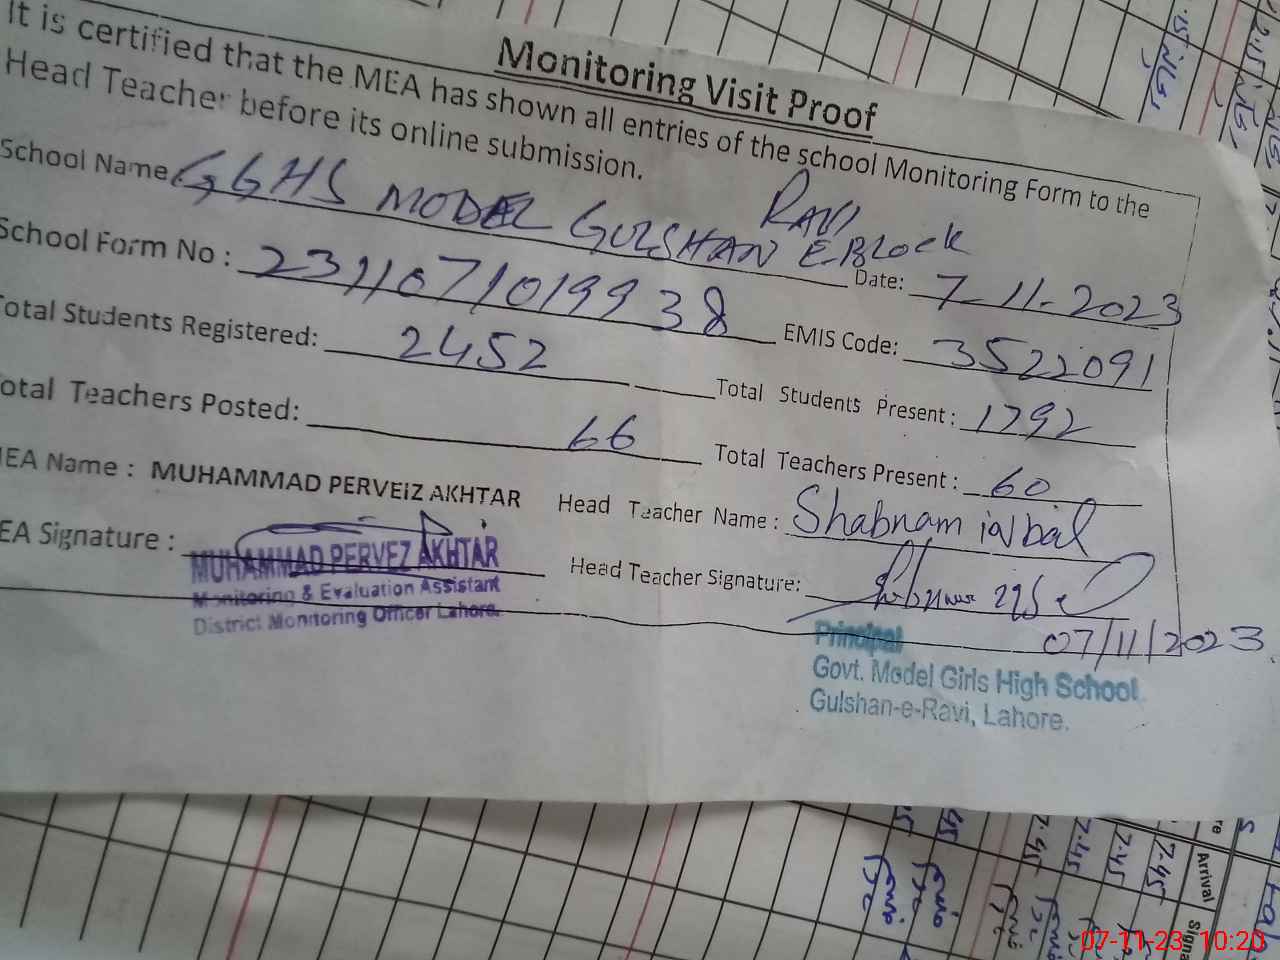 Monitoring Visit Proof
It is certified that the MEA has shown all entries of the school Monitoring Form to the
Head Teacher before its online submission.
School Name GGHS MODEL GULSHAN E RAVI E BLOCK
School Form No : 2311071019938 Date: 7-11-2023
Total Students Registered: 2452 EMIS Code: 3522091
Total Students Present : 1792
Total Teachers Posted: 66 Total Teachers Present : 60
MEA Name : MUHAMMAD PERVEIZ AKHTAR Head Teacher Name : Shabnam iqbal
MEA Signature : Head Teacher Signature:
07/11/2023
MUHAMMAD PERVEZ AKHTAR
Monitoring & Evaluation Assistant
District Monitoring Officer Lahore.
Principal
Govt. Model Girls High School
Gulshan-e-Ravi, Lahore.
7.45
7.45
7.45
7.45
Arrival
07-11-23 10:20